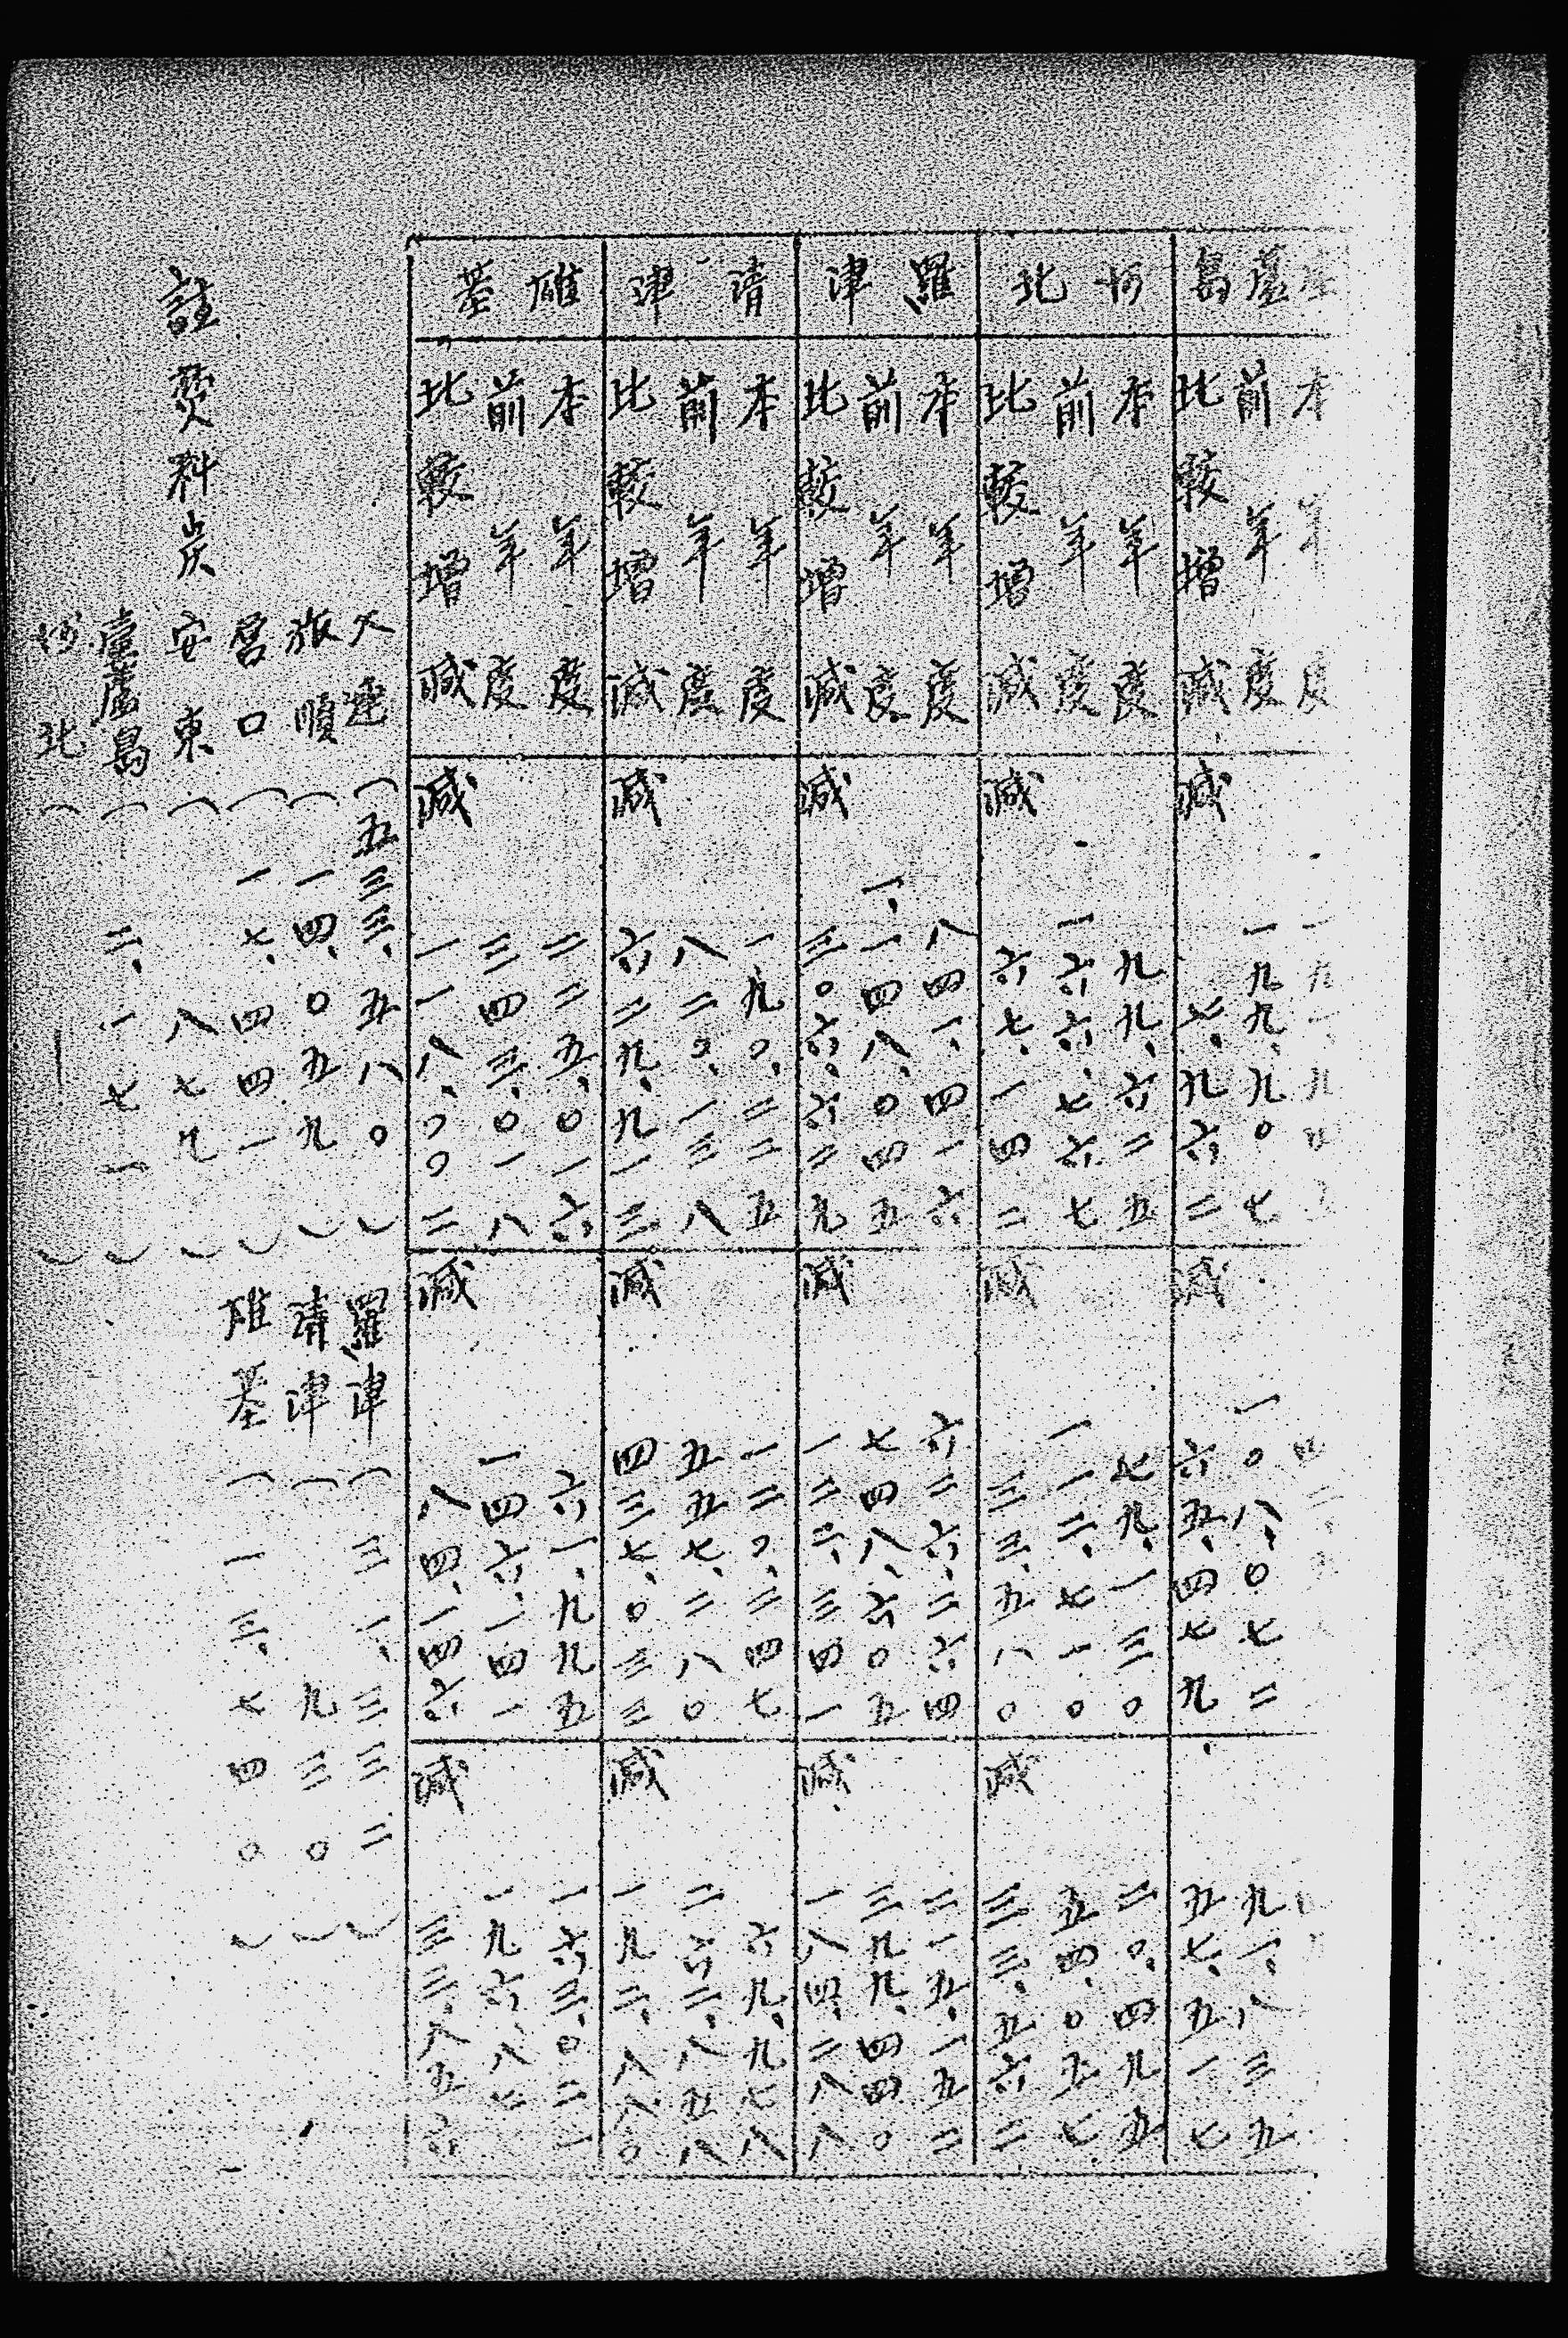 壺蘆島
本年度 一九一、九四
前年度 一九九、九〇七 一〇八、〇七二 九一、八三五
比較增減 減 七、九六二 減 六五、四七九 五七、五一七
河北
本年度 九九、六二五 七九、一三〇 二〇、四九五
前年度 一六六、七六七 一一二、七一〇 五四、〇五七
比較增減 減 六七、一四二 減 三三、五八〇 減 三三、五六二
羅津
本年度 八四一、四一六 六二六、二六四 二一五、一五二
前年度 一、一四八、〇四五 七四八、六〇五 三九九、四四〇
比較增減 減 三〇六、六二九 減 一二二、三四一 減 一八四、二八八
清津
本年度 一九〇、二二五 一二〇、二四七 六九、九七八
前年度 八二〇、一三八 五五七、二八〇 二六二、八五八
比較增減 減 六二九、九一三 減 四三七、〇三三 減 一九二、八八〇
雄基
本年度 二二五、〇一六 六一、九九五 一六三、〇二一
前年度 三四三、〇一八 一四六、一四一 一九六、八七七
比較增減 減 一一八、〇〇二 減 八四、一四六 減 三三、八五六
註 焚料炭
大連（五三三、五八〇）
旅順（一四、〇五九）
營口（一七、四四一）
安東（八七九）
壺蘆島（二、一七一）
河北（｜）
羅津（三一、三三二）
清津（九三〇）
雄基（一三、七四〇）